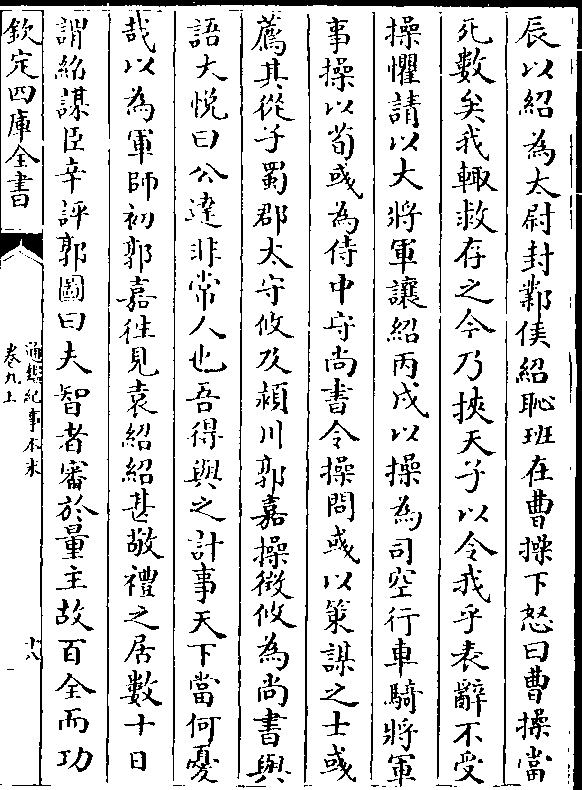 辰以紹為太尉封鄴侯紹恥班在曹操下怒曰曹操當
死數矣我輒救存之今乃挾天子以令我乎表辭不受
操懼請以大將軍讓紹丙戌以操為司空行車騎將軍
事操以荀彧為侍中守尚書令操問彧以策謀之士彧
薦其從子蜀郡太守攸及潁川郭嘉操徵攸為尚書與
語大悅曰公達非常人也吾得與之計事天下當何憂
哉以為軍師初郭嘉往見袁紹紹甚敬禮之居數十日
謂紹謀臣辛評郭圖曰夫智者審於量主故百全而功
欽定四庫全書
通鑑紀事本末
卷九上
十八